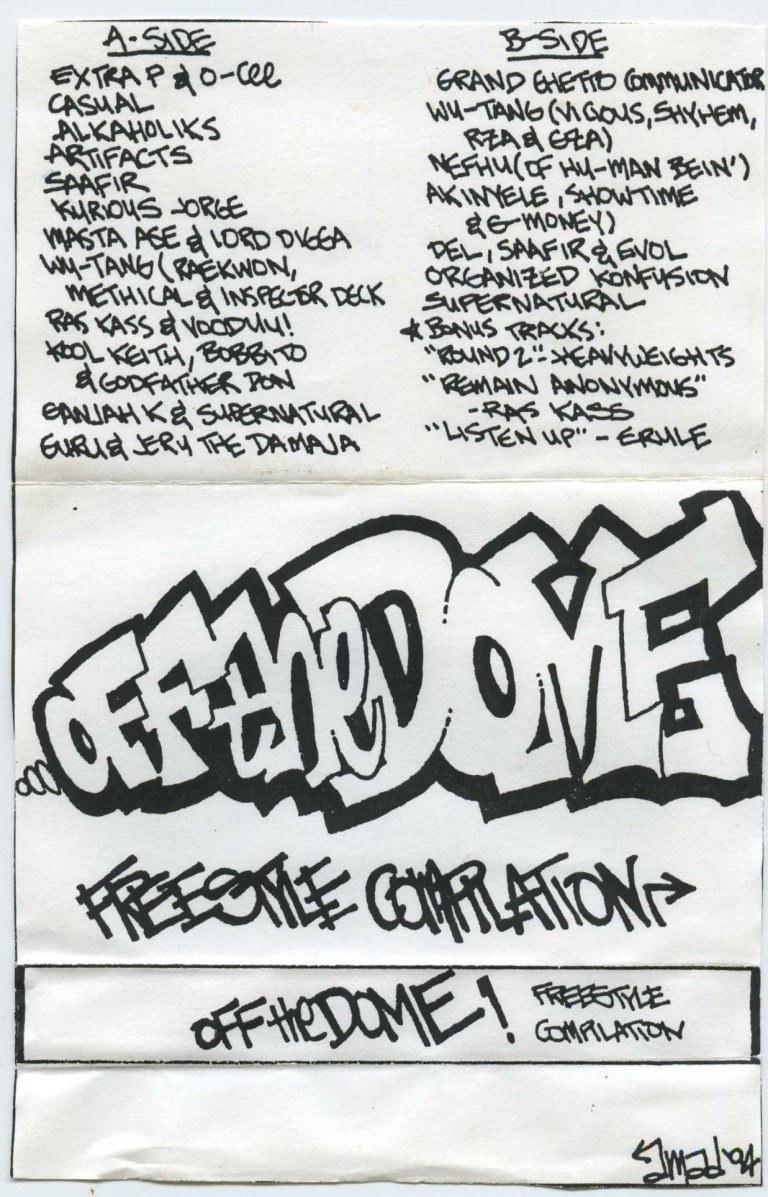 A-SIDE
EXTRA P & O-Cee
CASUAL
ALKAHOLIKS
ARTIFACTS
SAAFIR
KURIOUS JORGE
MASTA ASE & LORD DIGGA
WU-TANG (RAEKWON,
METHICAL & INSPECTOR DECK
RAS KASS & VOODUU!
KOOL KEITH, BOBBITO
& GODFATHER DON
GANJAH K & SUPERNATURAL
GURU & JERU THE DAMAJA
B-SIDE
GRAND GHETTO COMMUNICATOR
WU-TANG (VICIOUS, SHYHEM,
RZA & GZA)
NEFHU (OF HU-MAN BEIN')
AKINYELE, SHOWTIME
& G-MONEY)
DEL, SAAFIR & EVOL
ORGANIZED KONFUSION
SUPERNATURAL
★ BONUS TRACKS:
"ROUND 2" - HEAVYWEIGHTS
"REMAIN ANONYMOUS"
- RAS KASS
"LISTEN UP" - ERULE
...OFF the DOME
FREESTYLE COMPILATION →
OFF the DOME!
FREESTYLE
COMPILATION
'94